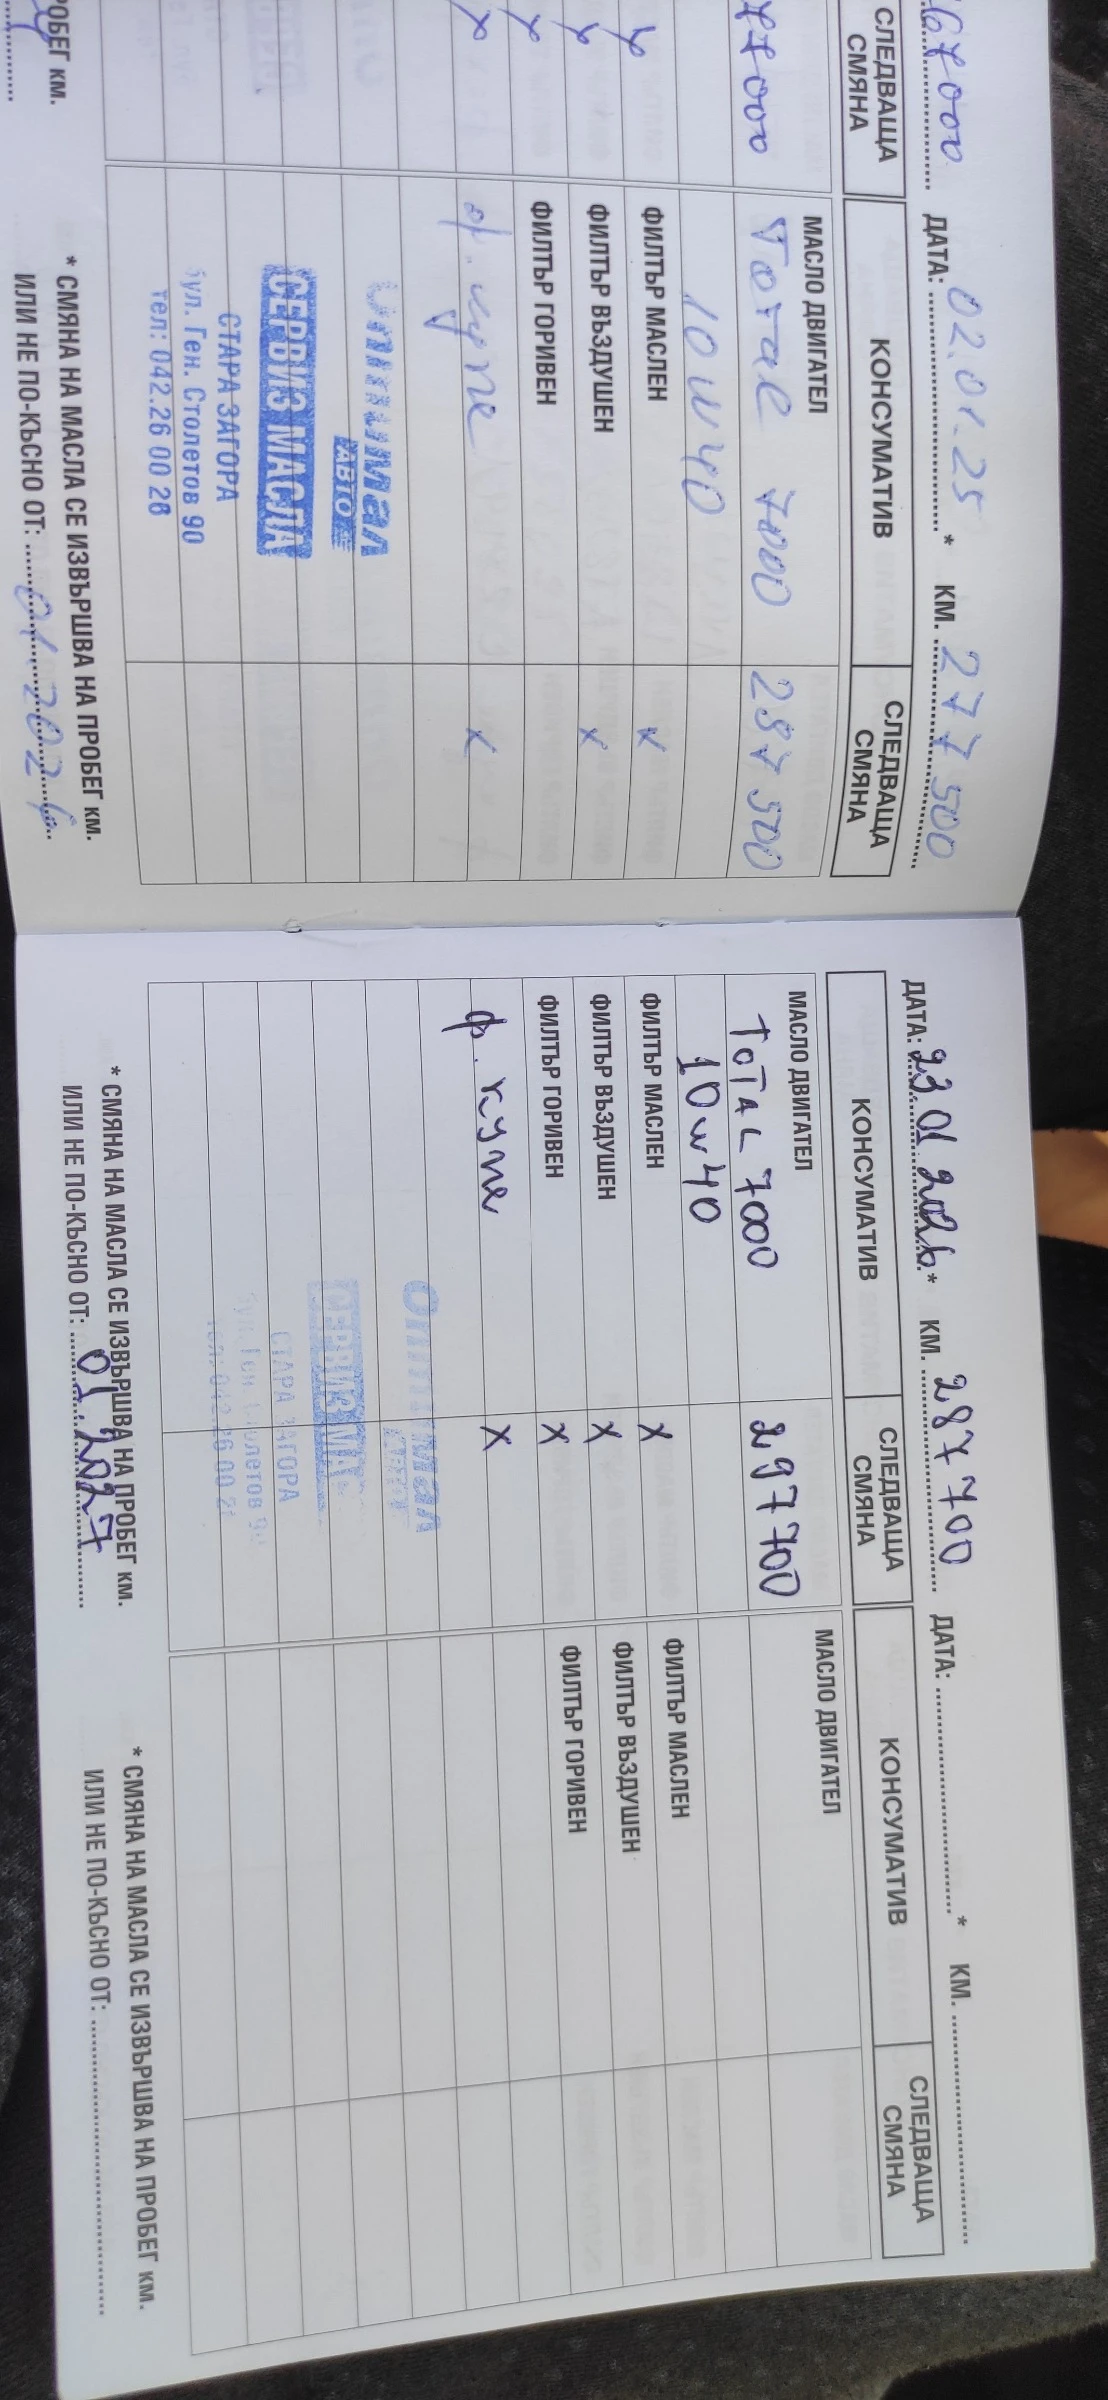 67000
СЛЕДВАЩА
СМЯНА
77000
х
х
х
х
ПРОБЕГ КМ.
ДАТА: 02.01.25 * КМ. 277 500
КОНСУМАТИВ СЛЕДВАЩА
СМЯНА
МАСЛО ДВИГАТЕЛ
Тотал 7000 287 500
10w40
ФИЛТЪР МАСЛЕН х
ФИЛТЪР ВЪЗДУШЕН х
ФИЛТЪР ГОРИВЕН
ф. купе х
Оптимал
АВТО
СЕРВИЗ МАСЛА
СТАРА ЗАГОРА
бул. Ген. Столетов 90
тел: 042.26 00 28
* СМЯНА НА МАСЛА СЕ ИЗВЪРШВА НА ПРОБЕГ КМ.
ИЛИ НЕ ПО-КЪСНО ОТ: 01.2026
ДАТА: 23.01.2026 * КМ. 287 700
КОНСУМАТИВ СЛЕДВАЩА
СМЯНА
МАСЛО ДВИГАТЕЛ
ТоТАL 7000 297 700
10w40
ФИЛТЪР МАСЛЕН х
ФИЛТЪР ВЪЗДУШЕН х
ФИЛТЪР ГОРИВЕН х
ф. купе х
Оптимал
СЕРВИЗ МА
СТАРА ЗАГОРА
* СМЯНА НА МАСЛА СЕ ИЗВЪРШВА НА ПРОБЕГ КМ.
ИЛИ НЕ ПО-КЪСНО ОТ: 01.2027
ДАТА: * КМ.
КОНСУМАТИВ СЛЕДВАЩА
СМЯНА
МАСЛО ДВИГАТЕЛ
ФИЛТЪР МАСЛЕН
ФИЛТЪР ВЪЗДУШЕН
ФИЛТЪР ГОРИВЕН
* СМЯНА НА МАСЛА СЕ ИЗВЪРШВА НА ПРОБЕГ КМ.
ИЛИ НЕ ПО-КЪСНО ОТ: